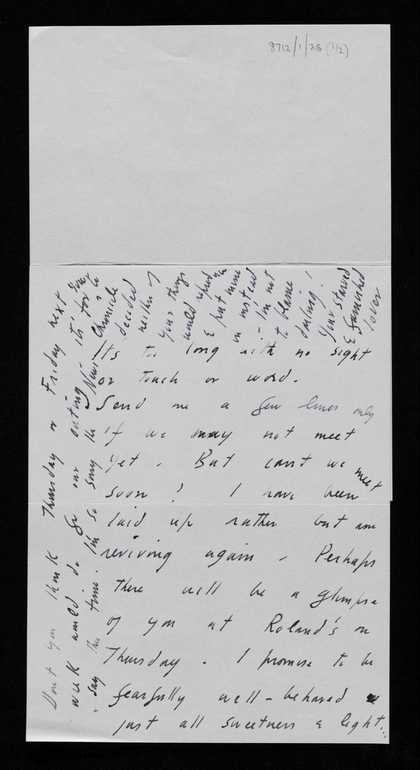 8712/1/28 (1/2)
Its too long with no sight
or touch or word.
Send me a few lines only
if we may not meet
yet. But cant we meet
soon? I have been
laid up rather but am
reviving again. Perhaps
there will be a glimpse
of you at Roland's on
Thursday. I promise to be
fearfully well-behaved
just all sweetness & light.
Dont you think Thursday or Friday next
week would do for our outing
say this time. Im so sorry the
News Chronicle
decided
neither of
your things
would
& put mine
in instead
I'm not
to blame
darling!
Your starved
& famished
lover